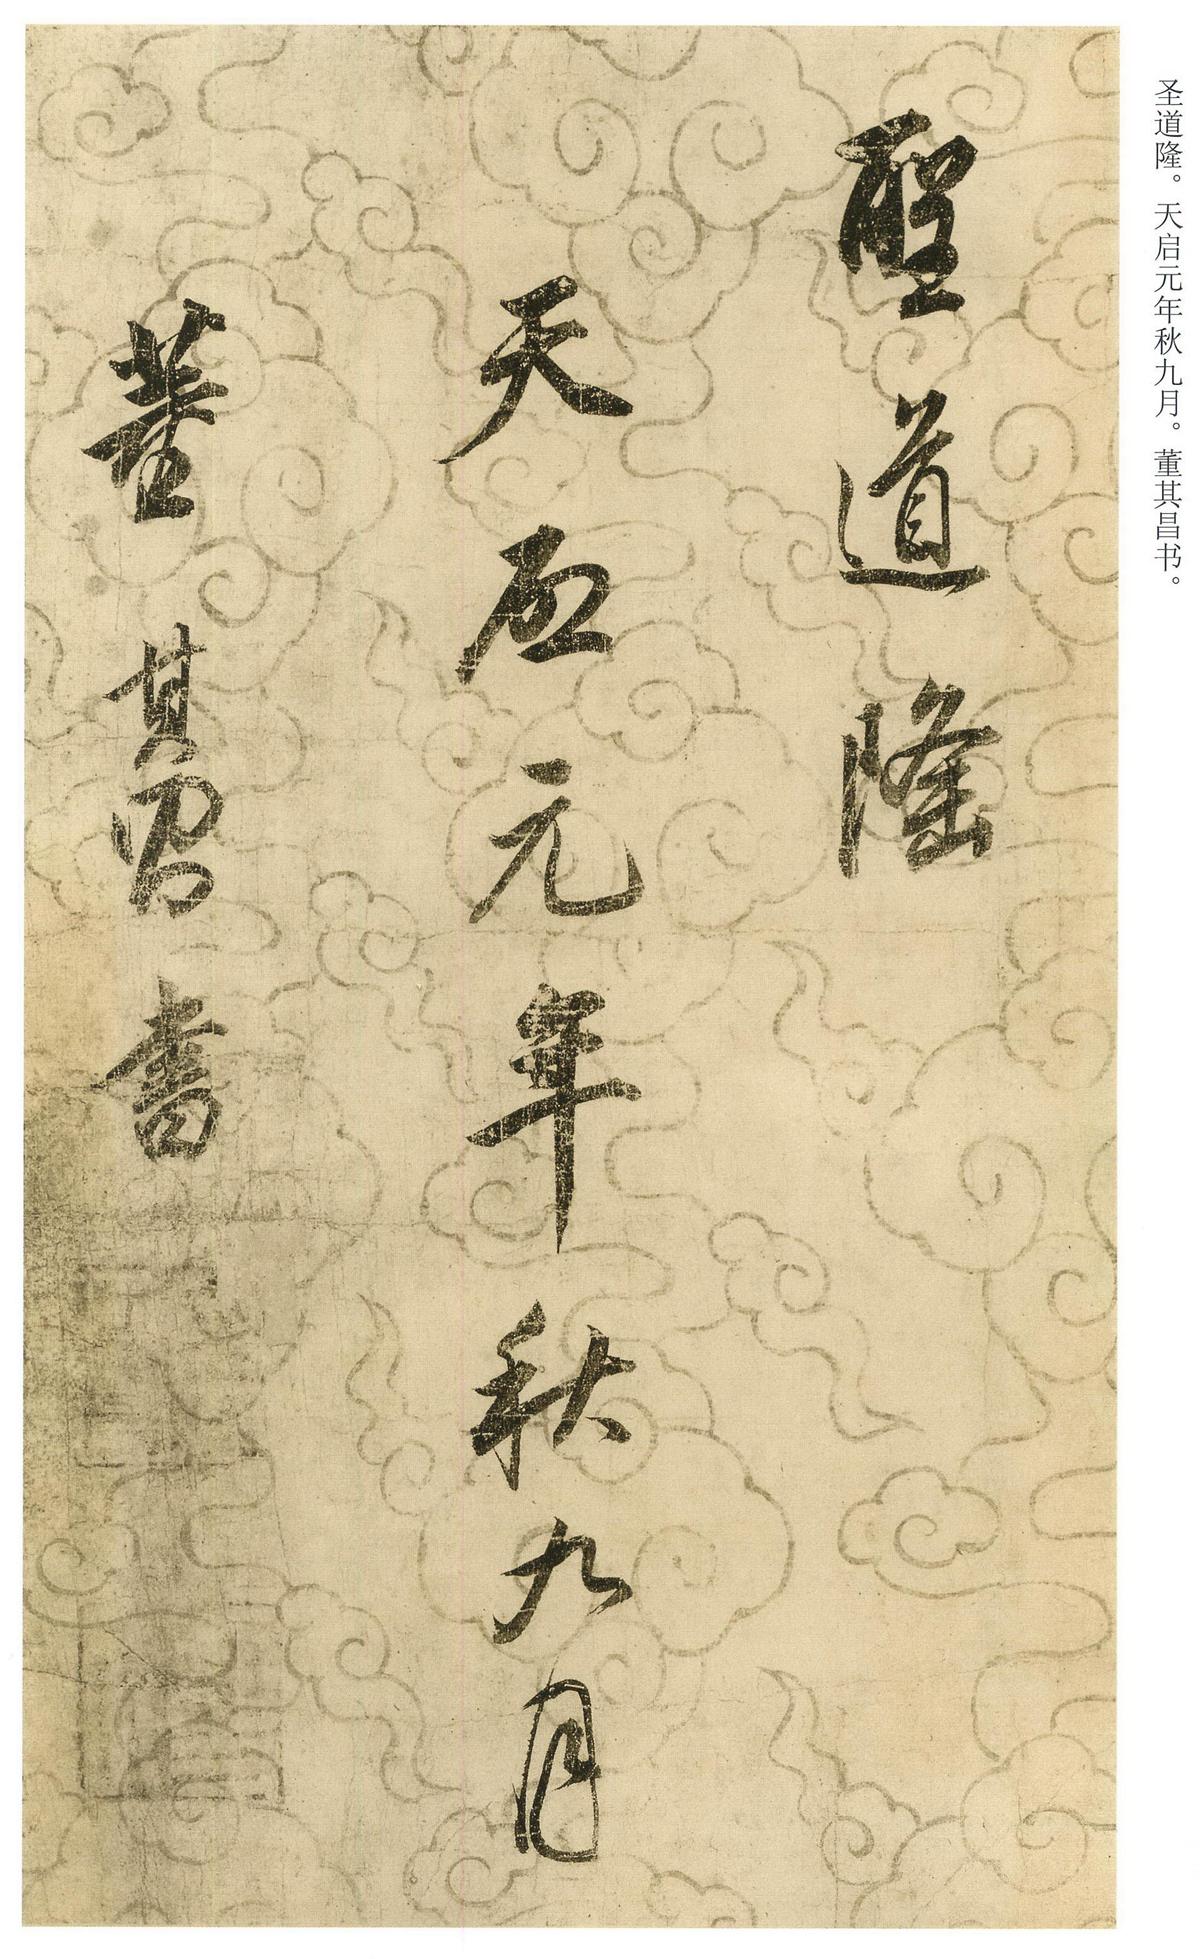 圣道隆。天启元年秋九月。董其昌书。
聖道隆
天启元年秋九月
董其昌書